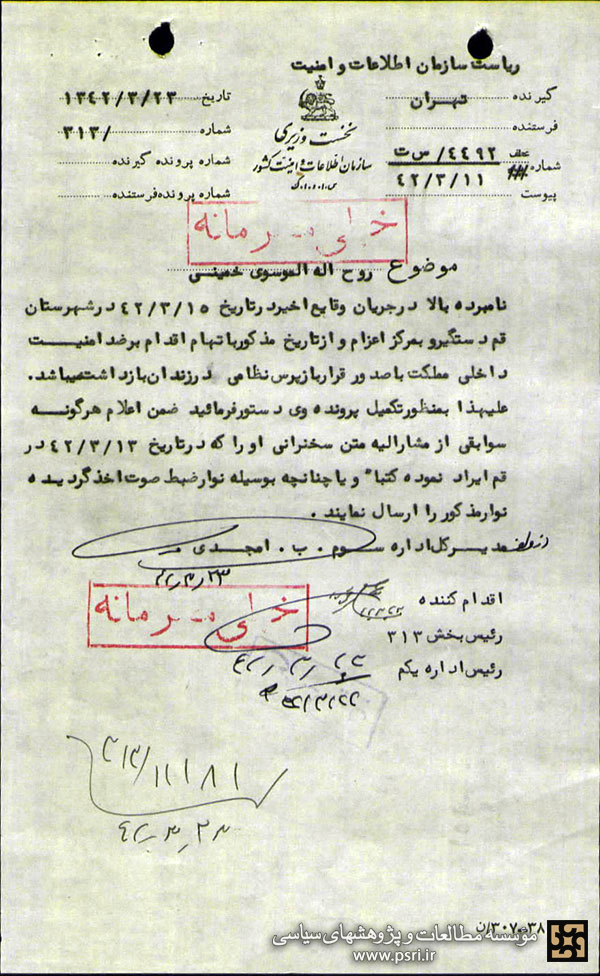 ریاست سازمان اطلاعات و امنیت
گیرنده تهران
فرستنده
شماره ۴۴۹۲/ س ت
۴۲/۳/۱۱
پیوست
نخست وزیری
سازمان اطلاعات و امنیت کشور
س.ا.و.ا.ک
تاریخ ۱۳۴۲/۳/۲۳
شماره ۳۱۳/
شماره پرونده گیرنده
شماره پرونده فرستنده
خیلی محرمانه
موضوع روح اله الموسوی خمینی
نامبرده بالا در جریان وقایع اخیر در تاریخ ۴۲/۳/۱۵ در شهرستان
قم دستگیر و بمرکز اعزام و از تاریخ مذکور باتهام اقدام بر ضد امنیت
داخلی مملکت با صدور قرار بازپرس نظامی در زندان بازداشت میباشد.
علیهذا بمنظور تکمیل پرونده وی دستور فرمائید ضمن اعلام هرگونه
سوابقی از مشارالیه متن سخنرانی او را که در تاریخ ۴۲/۳/۱۳ در
قم ایراد نموده کتبا" و یا چنانچه بوسیله نوار ضبط صوت اخذ گردیده
نوار مذکور را ارسال نمایند.
مدیر کل اداره سوم. ب. امجدی
۴۲/۳/۲۳
اقدام کننده
رئیس بخش ۳۱۳
رئیس اداره یکم
خیلی محرمانه
۴۲/۳/۲۳
۳۱۳/۱۱۱۸۱
۴۲/۳/۲۳
موسسه مطالعات و پژوهشهای سیاسی
www.psri.ir